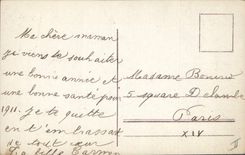 Ma chère maman
je viens te souhaiter
une bonne année et
une bonne santé pour
1911. je te quitte
en t'embrassant
de tout cœur
Ta fille
Madame
5 square
Paris
XIV